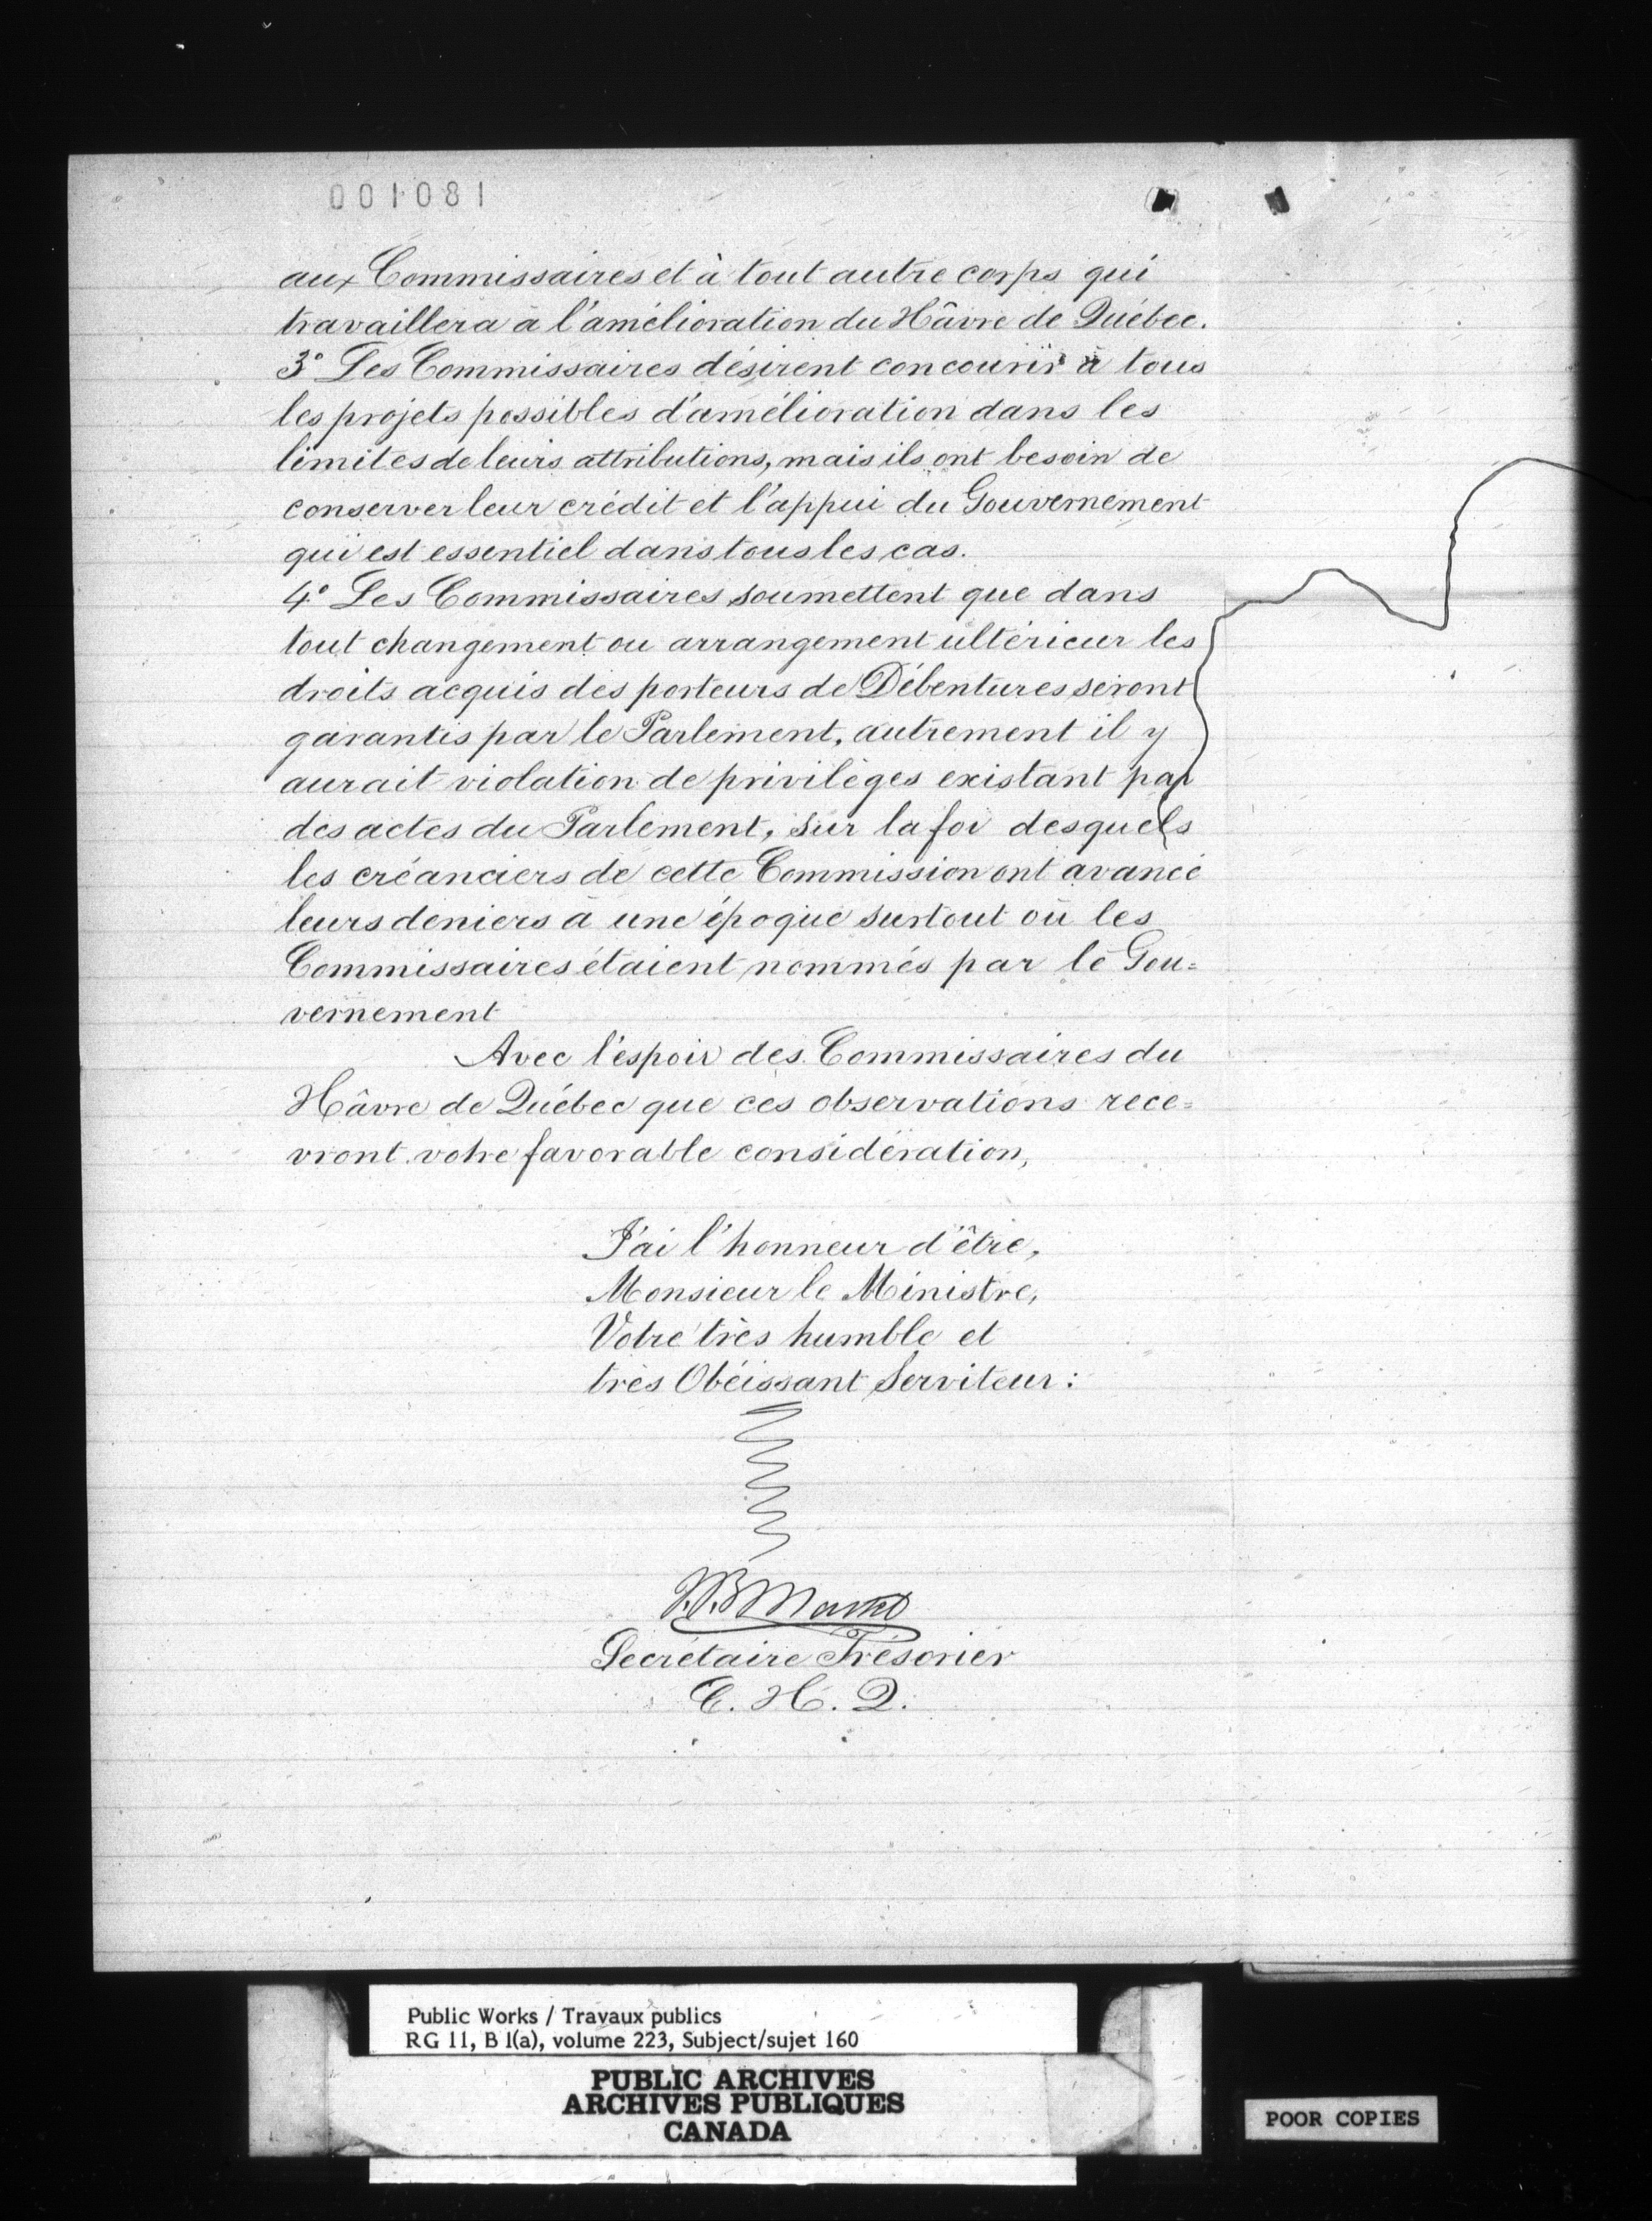 001081
aux Commissaires et à tout autre corps qui
travaillera à l'amélioration du Hâvre de Québec.
3° Les Commissaires désirent concourir à tous
les projets possibles d'amélioration dans les
limites de leurs attributions, mais ils ont besoin de
conserver leur crédit et l'appui du Gouvernement
qui est essentiel dans tous les cas.
4° Les Commissaires soumettent que dans
tout changement ou arrangement ultérieur les
droits acquis des porteurs de Débentures seront
garantis par le Parlement, autrement il y
aurait violation de privilèges existant par
des actes du Parlement, sur la foi desquels
les créanciers de cette Commission ont avancé
leurs deniers à une époque surtout où les
Commissaires étaient nommés par le Gou=
vernement
Avec l'espoir des Commissaires du
Hâvre de Québec que ces observations rece=
vront votre favorable considération,
J'ai l'honneur d'être,
Monsieur le Ministre,
Votre très humble et
très Obéissant Serviteur :
Secrétaire Trésorier
C. H. Q.
Public Works / Travaux publics
RG 11, B 1(a), volume 223, Subject/sujet 160
PUBLIC ARCHIVES
ARCHIVES PUBLIQUES
CANADA
POOR COPIES